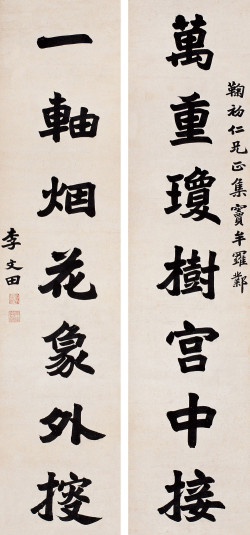 鞠初仁兄正集竇牟羅鄴
萬重瓊樹宮中接
一軸烟花象外搜
李文田